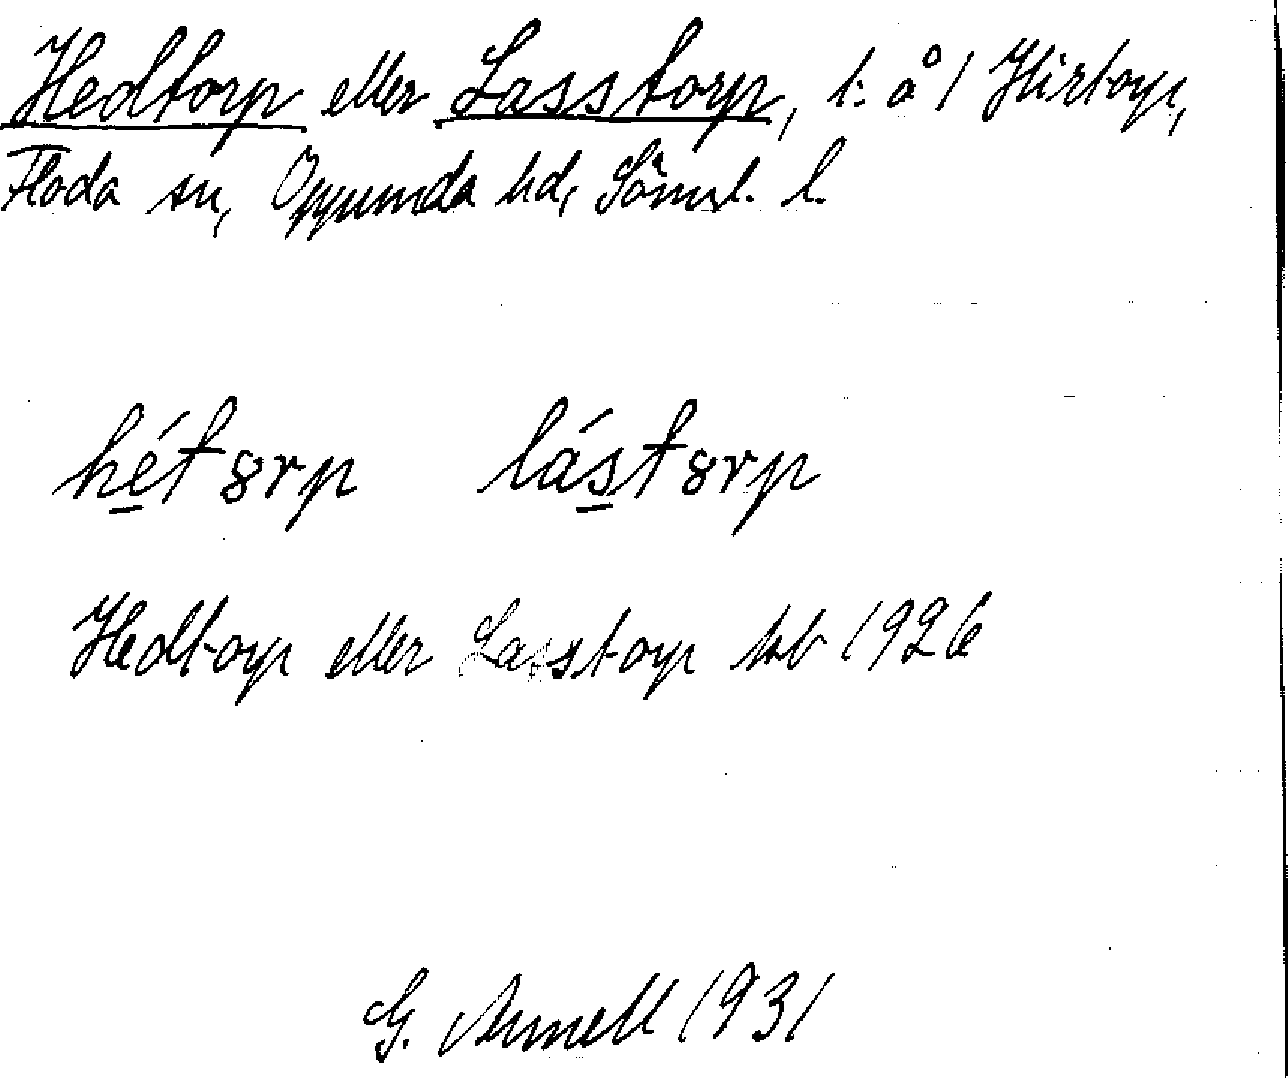 Hedtorp eller Lasstorp, t: å 1 Hirtorp,
Floda sn, Oppunda hd, Söml. l.
hétȣrp lástȣrp
Hedtorp eller Lasstorp kb 1926
G. Annell 1931